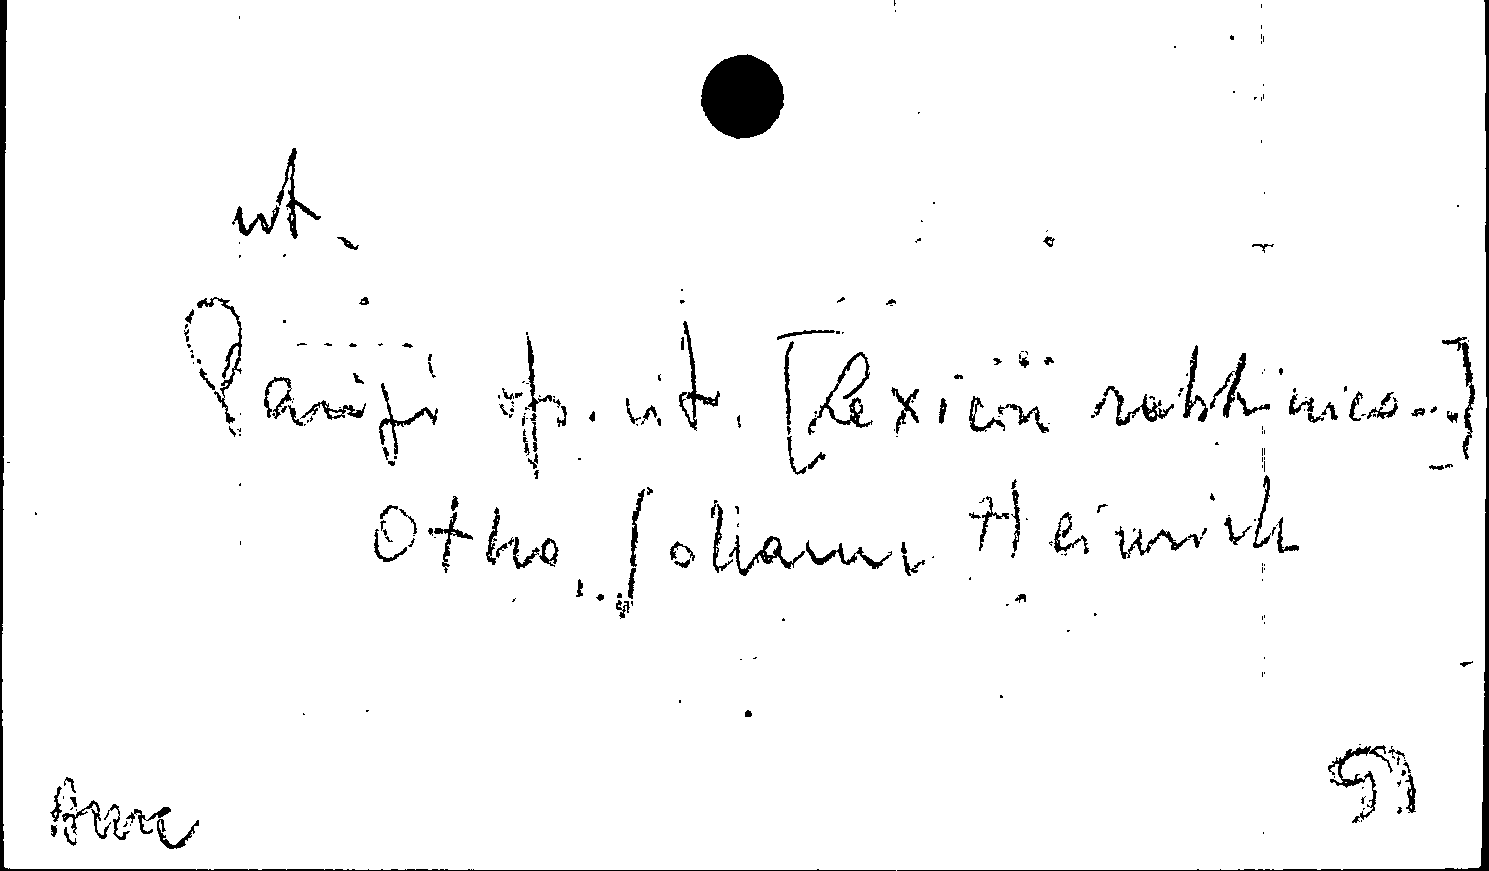 ut.
Parizsi op. cit. [Lexicon rabbinico...]
Otho, Johann Heinrich